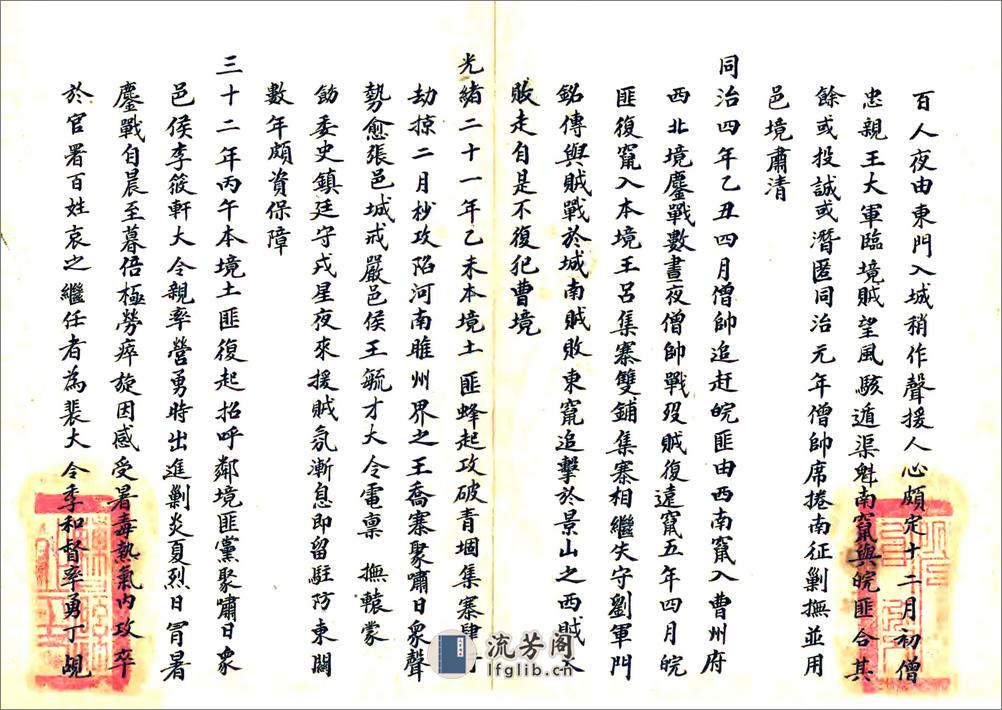 百人夜由東門入城稍作聲援人心頗定十二月初僧
忠親王大軍臨境賊望風駭遁渠魁南竄與皖匪合其
餘或投誠或潛匿同治元年僧帥席捲南征剿撫並用
邑境肅清
同治四年乙丑四月僧帥追赶皖匪由西南竄入曹州府
西北境鏖戰數晝夜僧帥戰歿賊復遠竄五年四月皖
匪復竄入本境王呂集寨雙鋪集寨相繼失守劉軍門
銘傳與賊戰於城南賊敗東竄追擊於景山之西賊大
敗走自是不復犯曹境
光緒二十一年乙未本境土匪蜂起攻破青堌集寨肆行
劫掠二月杪攻陷河南睢州界之王喬寨聚嘯日衆聲
勢愈張邑城戒嚴邑侯王毓才大令電稟 撫轅蒙
飭委史鎮廷守戎星夜來援賊氛漸息即留駐防東關
數年頗資保障
三十二年丙午本境土匪復起招呼鄰境匪黨聚嘯日衆
邑侯李筱軒大令親率營勇時出進剿炎夏烈日冒暑
鏖戰自晨至暮倍極勞瘁旋因感受暑毒熱氣內攻卒
於官署百姓哀之繼任者為裴大令季和督率勇丁覘
流芳阁
lfglib.cn